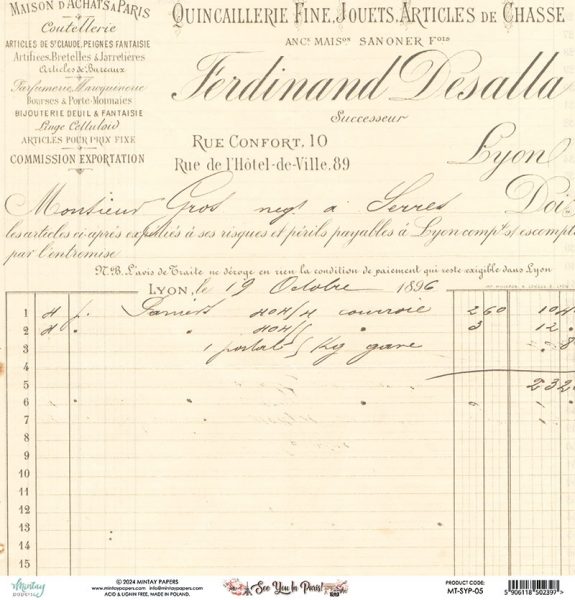 MAISON D'ACHATS À PARIS
Coutellerie
ARTICLES DE ST CLAUDE, PEIGNES FANTAISIE
Artifices, Bretelles & Jarretières
Articles de Bureaux
Parfumerie, Maroquinerie
Bourses & Porte-Monnaies
BIJOUTERIE DEUIL & FANTAISIE
Linge Celluloïd
ARTICLES POUR PRIX FIXE
COMMISSION EXPORTATION
QUINCAILLERIE FINE, JOUETS, ARTICLES DE CHASSE
ANCE MAISON SANONER FOIS
Ferdinand Desalla
Successeur
RUE CONFORT, 10
Rue de l'Hôtel-de-Ville, 89
Lyon
Monsieur Gros negt à Serres Doi
les articles ci-après expédiés à ses risques et périls payables à Lyon compt s/ escompt
par l'entremise
N.B. L'avis de Traite ne déroge en rien la condition de paiement qui reste exigible dans Lyon
LYON, le 19 Octobre 1896
1 404/4 courroie 2 60 104
2 404/5 " 3 12
3 1 postal 5 Kg gare 8
4
5 232
6
7
8
9
10
11
12
13
14
15
mintay
© 2024 MINTAY PAPERS
www.mintaypapers.com info@mintaypapers.com
ACID & LIGNIN FREE, MADE IN POLAND.
See You In Paris!
PRODUCT CODE:
MT-SYP-05
5 906118 502397 >